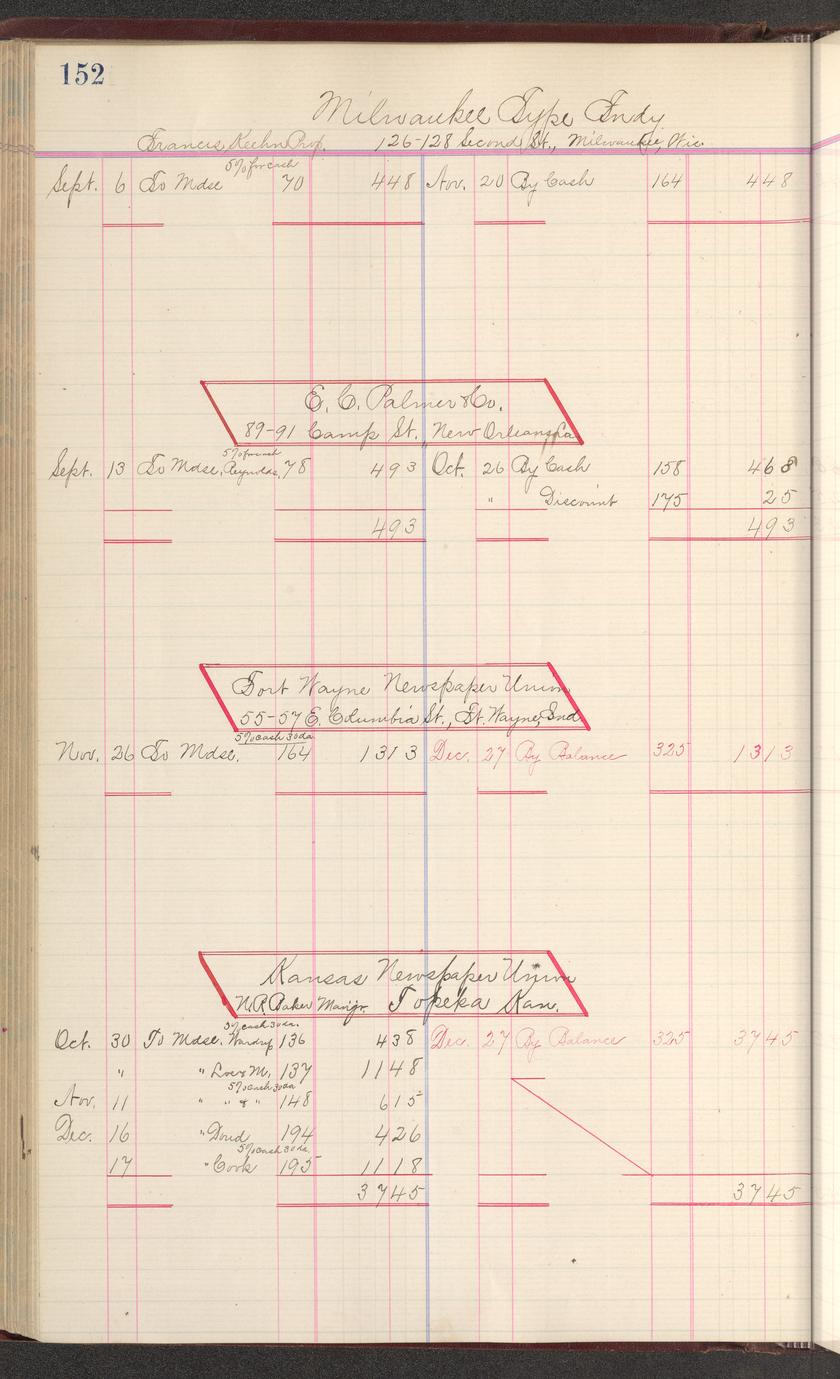 152
Milwaukee Type Fndy
Francis Keehn Prop. 126-128 Second St., Milwaukee, Wis.
5% for cash
Sept. 6 To Mdse 70 448 Nov. 20 By Cash 164 448
E. C. Palmer & Co.
89-91 Camp St., New Orleans, La
5% for cash
Sept. 13 To Mdse, Reynolds, 78 493 Oct. 26 By Cash 158 468
" Discount 175 25
493 493
Fort Wayne Newspaper Union
55-57 E. Columbia St., Ft. Wayne, Ind
5% cash 30 da
Nov. 26 To Mdse, 164 1313 Dec. 27 By Balance 325 1313
Kansas Newspaper Union
N.R. Baker Mangr. Topeka Kan.
5% cash 30 da.
Oct. 30 To Mdse, Wardrip 136 438 Dec. 27 By Balance 325 3745
" " M, 137 1148
5% cash 30 da
Nov. 11 " " & " 148 615
Dec. 16 " Doud 194 426
5% cash 30 da
17 " Cook 195 1118
3745 3745